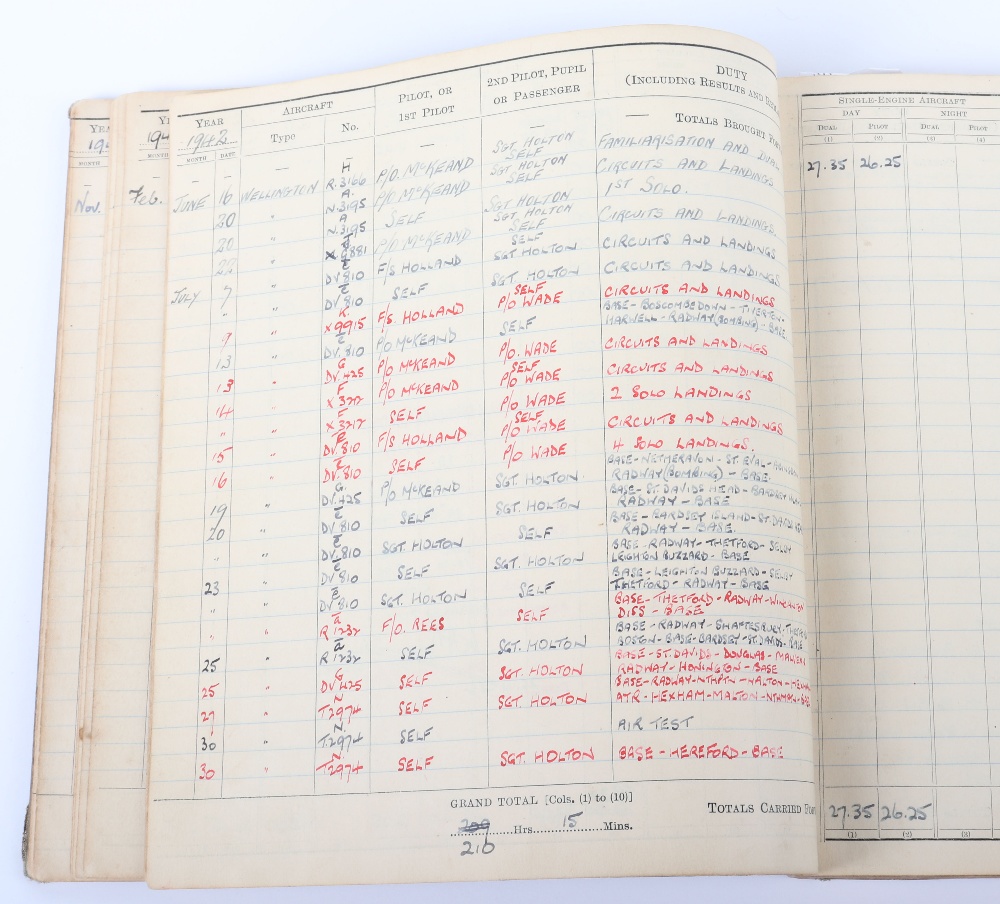 YEAR
194
MONTH
Nov.
194
MONTH
Feb.
YEAR
1942
MONTH DATE
AIRCRAFT
Type
No.
PILOT, OR
1ST PILOT
2ND PILOT, PUPIL
OR PASSENGER
DUTY
(INCLUDING RESULTS AND
TOTALS BROUGHT
— — — — —
JUNE 16 WELLINGTON H R.3166 P/O. McKEAND SGT HOLTON SELF FAMILIARISATION AND DUAL
20 " A. N.3195 P/O McKEAND SGT HOLTON SELF CIRCUITS AND LANDINGS
20 " A N.3195 SELF SGT HOLTON 1ST SOLO.
22 " P/O McKEAND SGT. HOLTON SELF CIRCUITS AND LANDINGS.
JULY 7 " DV.810 F/S HOLLAND SELF SGT HOLTON CIRCUITS AND LANDINGS
" " DV.810 SELF SGT HOLTON CIRCUITS AND LANDINGS
9 " K. X9915 F/S. HOLLAND SELF P/O WADE CIRCUITS AND LANDINGS
13 " DV.810 P/O McKEAND SELF BASE-BOSCOMBEDOWN-TIVERTON-
HARWELL-RADWAY(BOMBING)-BASE
13 " G DV.425 P/O McKEAND P/O. WADE CIRCUITS AND LANDINGS
14 " F P/O McKEAND SELF P/O WADE CIRCUITS AND LANDINGS
" " F SELF P/O WADE 2 SOLO LANDINGS
15 " DV.810 F/S HOLLAND SELF P/O WADE CIRCUITS AND LANDINGS
16 " DV.810 SELF P/O WADE 4 SOLO LANDINGS.
" G. DV.425 P/O McKEAND SGT HOLTON BASE-NETHERAVON-ST.EVAL-
RADWAY(BOMBING)-BASE.
19 " DV.810 SELF SGT HOLTON BASE-ST.DAVIDS HEAD-BARDSEY
RADWAY-BASE
20 " DV.810 SGT. HOLTON SELF BASE-BARDSEY ISLAND-ST.DAVIDS
RADWAY-BASE.
" " DV.810 SELF SGT HOLTON BASE-RADWAY-THETFORD-SELBY
LEIGHTON BUZZARD-BASE
23 " DV.810 SGT. HOLTON SELF BASE-LEIGHTON BUZZARD-SELBY
THETFORD-RADWAY-BASE
" " R1732 F/O. REES SELF BASE-THETFORD-RADWAY-WINCANTON
DISS-BASE
" " R1732 SELF SGT. HOLTON BASE-RADWAY-SHAFTESBURY-
BASE-BARDSEY-ST.DAVIDS-BASE
25 " G DV.425 SELF SGT. HOLTON BASE-ST.DAVIDS-DOUGLAS-MALVERN
RADWAY-HONINGTON-BASE
25 " N T.2974 SELF SGT. HOLTON BASE-RADWAY-NTHPTN-
27 ATR-HEXHAM-MALTON-NTHMPTN-BASE
30 " N. T.2974 SELF AIR TEST
30 " N. T.2974 SELF SGT. HOLTON BASE-HEREFORD-BASE
GRAND TOTAL [Cols. (1) to (10)]
209 Hrs. 15 Mins.
210
TOTALS CARRIED
SINGLE-ENGINE AIRCRAFT
DAY NIGHT
DUAL PILOT DUAL PILOT
(1) (2) (3) (4)
27.35 26.25
27.35 26.25
(1) (2) (3)